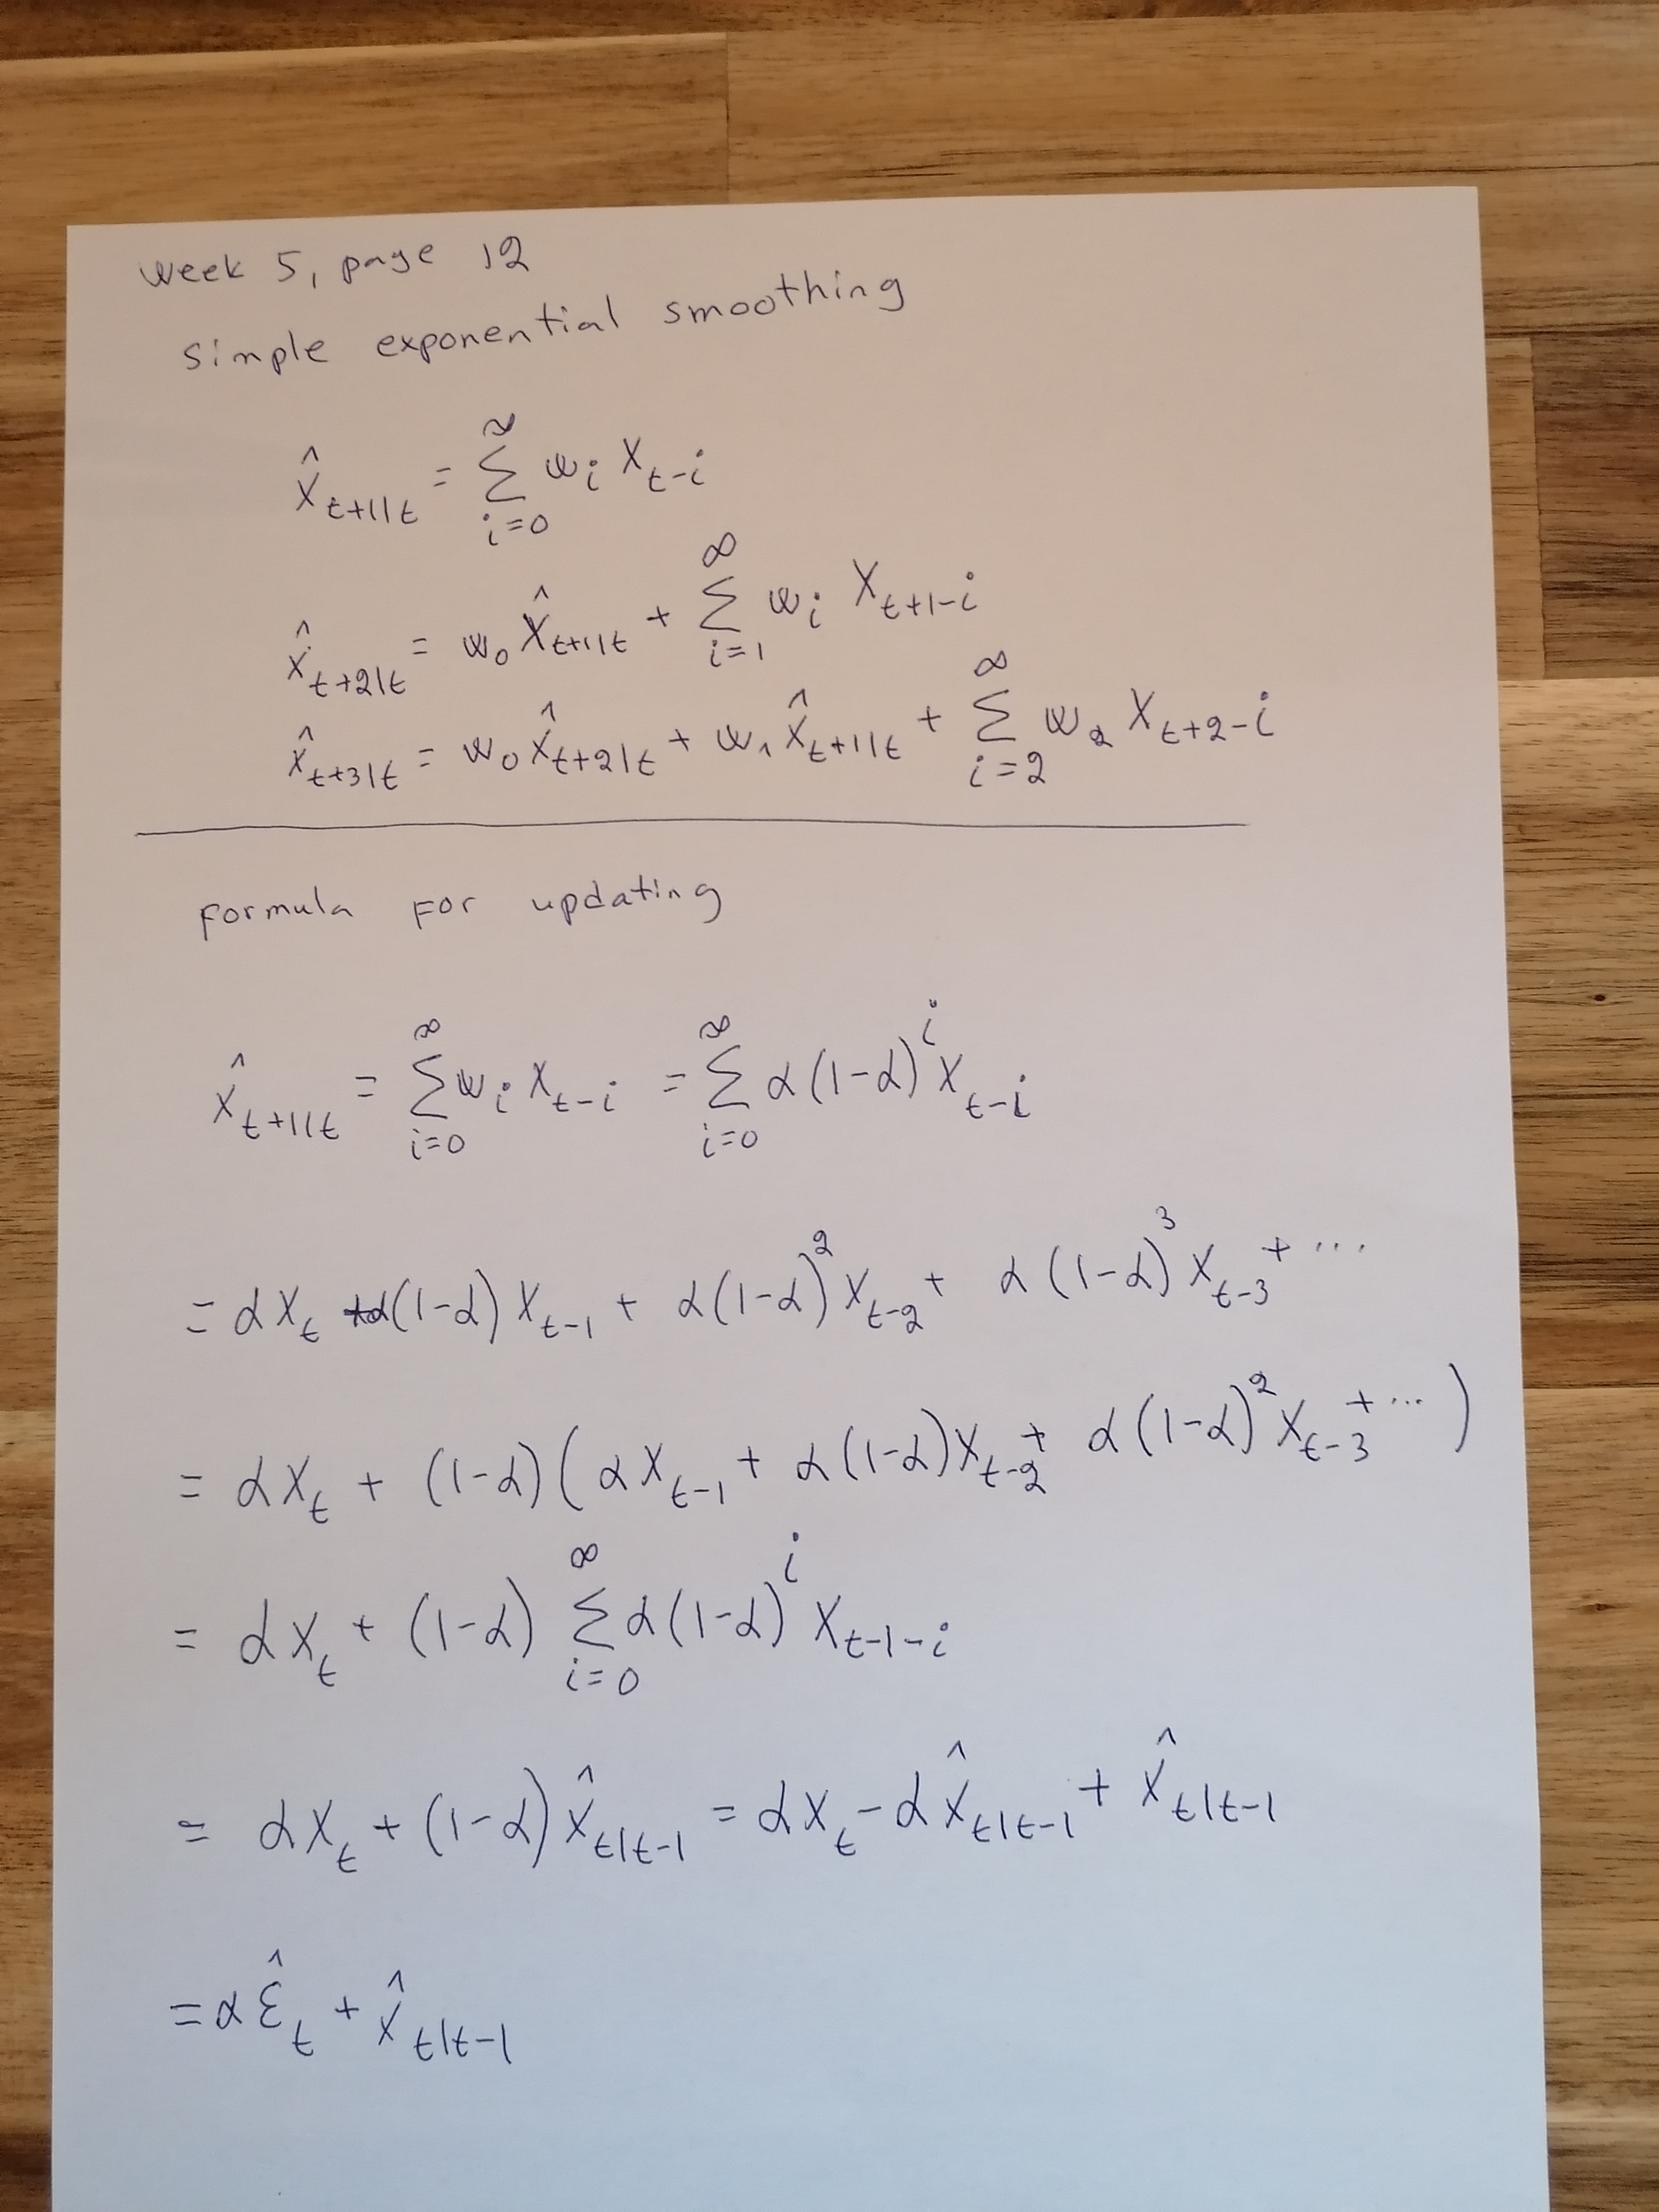 week 5, page 12
simple exponential smoothing
x̂_{t+1|t} = ∑_{i=0}^{∞} w_i x_{t-i}
x̂_{t+2|t} = w_0 x̂_{t+1|t} + ∑_{i=1}^{∞} w_i x_{t+1-i}
x̂_{t+3|t} = w_0 x̂_{t+2|t} + w_1 x̂_{t+1|t} + ∑_{i=2}^{∞} w_2 x_{t+2-i}
Formula for updating
x̂_{t+1|t} = ∑_{i=0}^{∞} w_i x_{t-i} = ∑_{i=0}^{∞} α(1-α)^i x_{t-i}
= αx_t + α(1-α)x_{t-1} + α(1-α)^2 x_{t-2} + α(1-α)^3 x_{t-3} + ...
= αx_t + (1-α)(αx_{t-1} + α(1-α)x_{t-2} + α(1-α)^2 x_{t-3} + ...)
= αx_t + (1-α) ∑_{i=0}^{∞} α(1-α)^i x_{t-1-i}
= αx_t + (1-α)x̂_{t|t-1} = αx_t - αx̂_{t|t-1} + x̂_{t|t-1}
= αε̂_t + x̂_{t|t-1}